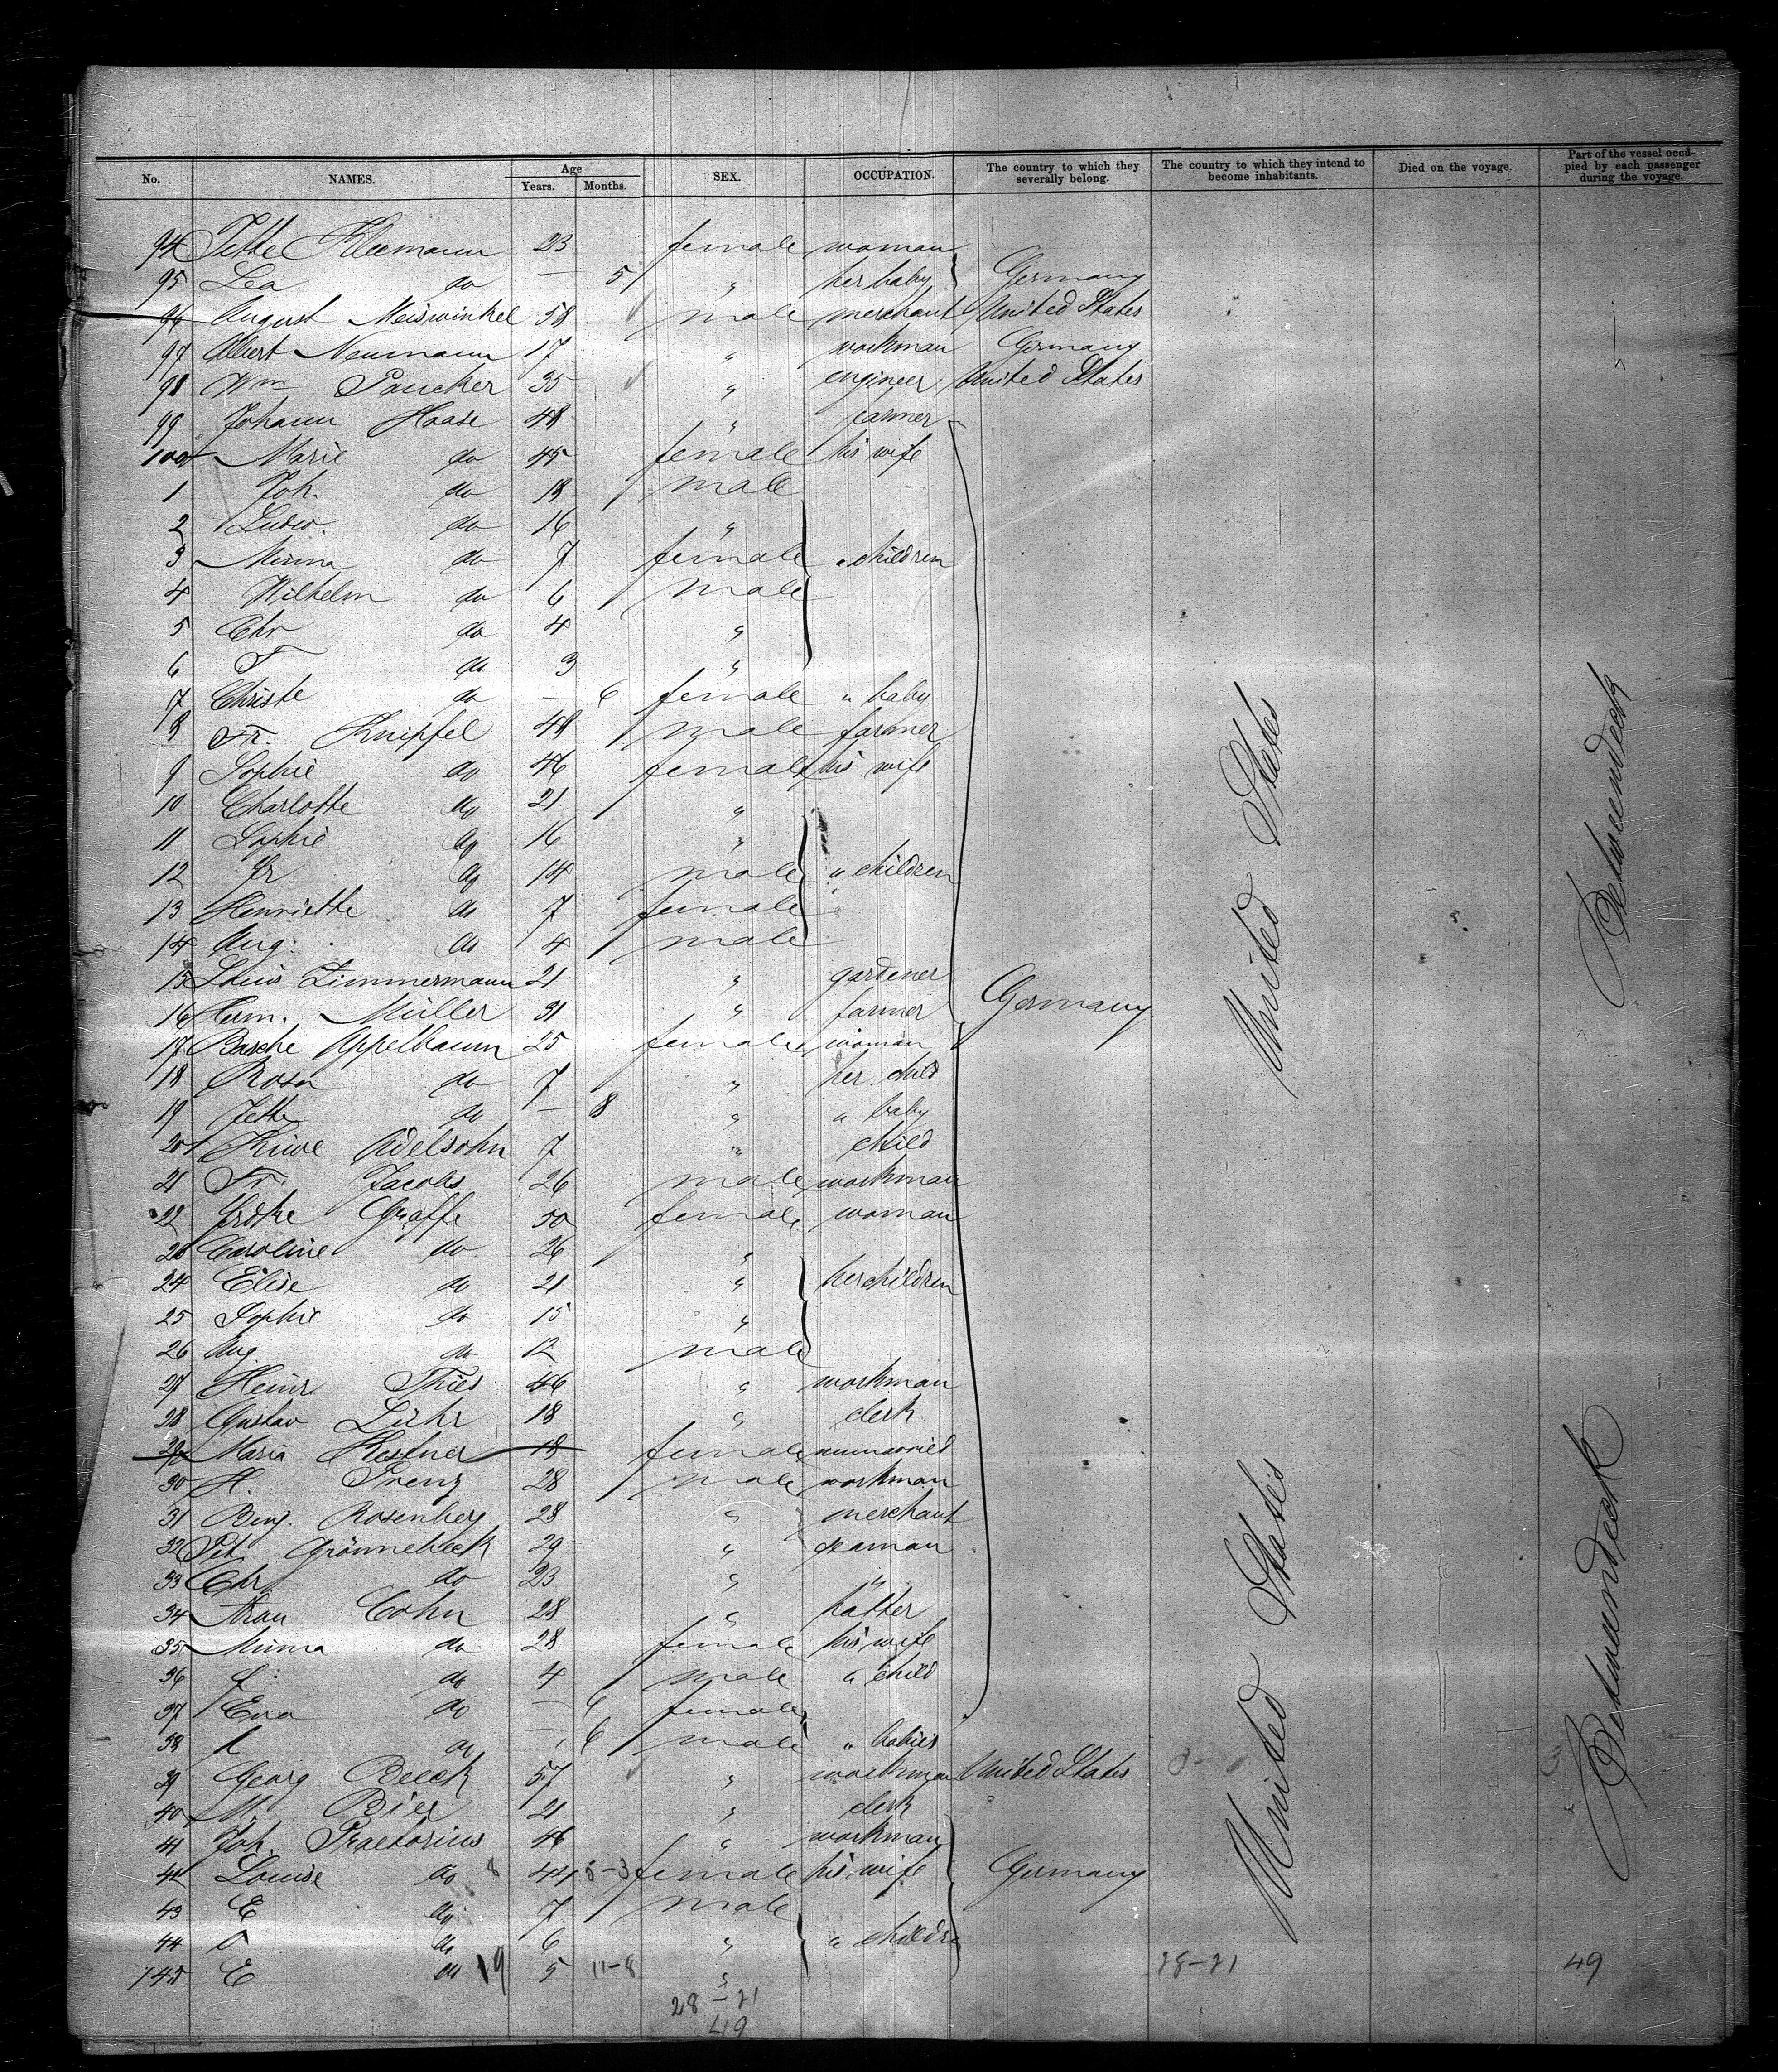 No. NAMES. Age Years. Months. SEX. OCCUPATION. The country to which they severally belong. The country to which they intend to become inhabitants. Died on the voyage. Part of the vessel occupied by each passenger during the voyage.
94 Jette Kleemann 23 female woman
95 Lea do — 5 " her baby Germany
96 August Meiswinkel 58 male merchant United States
97 Albert Neumann 17 " workman Germany
98 Wm Paucker 35 " engineer United States
99 Johann Haase 48 " farmer
100 Marie do 45 female his wife
1 Joh. do 18 male
2 Ludw. do 16 "
3 Minna do 7 female " children
4 Wilhelm do 6 male
5 Chr do 4 "
6 F do 3 "
7 Christe do — 6 female " baby
8 Fr. Knipfel 48 male farmer
9 Sophie do 46 female his wife
10 Charlotte do 21 "
11 Sophie do 16 "
12 Fr do 14 male " children
13 Henriette do 7 female
14 Aug. do 4 male
15 Louis Zimmermann 21 " gardener
16 Herm. Müller 31 " farmer Germany
17 Basche Appelbaum 25 female woman
18 Rosa do 7 " her child
19 Jette do — 8 " " baby
20 Adelsohn 7 " child
21 Fr. Jacobs 26 male workman
22 Graffe 50 female woman
23 Caroline do 26 "
24 Elise do 21 " her children
25 Sophie do 15 "
26 Aug. do 12 male
27 Heinr Thies 46 " workman
28 Gustav Lühr 18 " clerk
29 Maria Kestner 18 female unmarried
30 H. Prenz 28 male workman
31 Benj. Rosenberg 28 " merchant
32 Pet. Grönnebeck 29 " seaman
33 Chr do 23 " "
34 Cohn 28 " hatter
35 Minna do 28 female his wife
36 do 4 male " child
37 Eva do — 6 female
38 do — 6 male " babies
39 Georg Beeck 57 " workman United States
40 M. Bier 21 " clerk
41 Joh. Praetorius 46 " workman
42 Louise do 8 44 5-3 female his wife Germany
43 E do 7 male
44 O do 6 " " children
145 E do 19 5 11-8 "
28-21
49
United States
United States
28-21
Betweendeck
Betweendeck
49